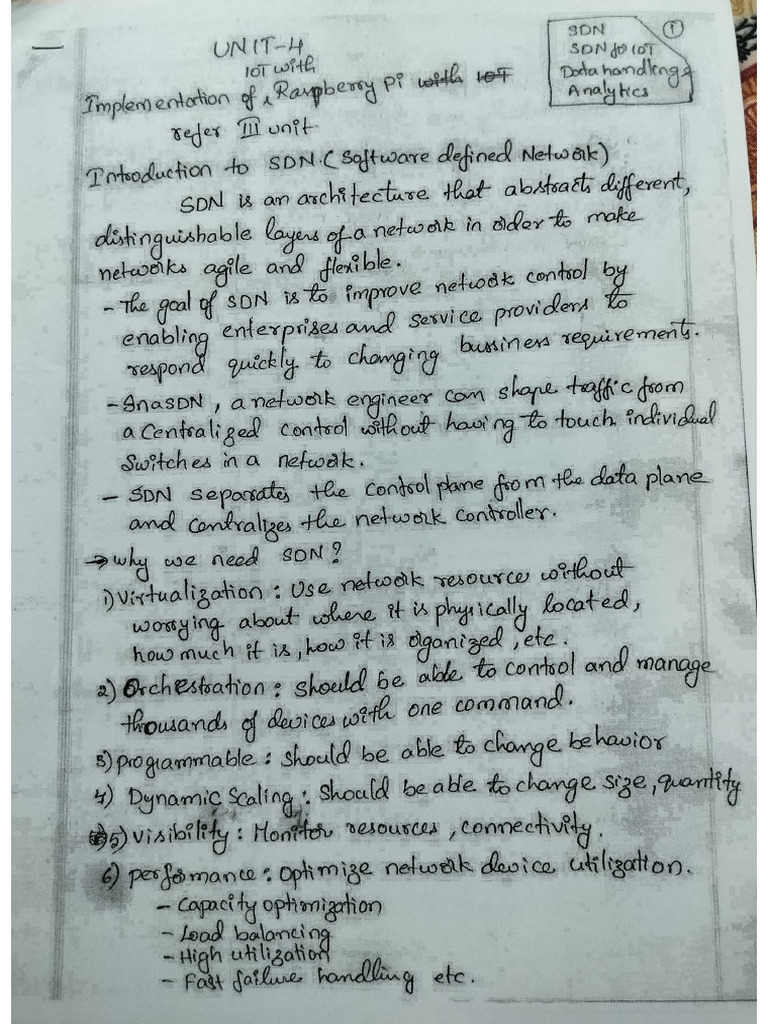 UNIT-4
SDN ①
SDN for IOT
Data handling &
Analytics
IOT with
Implementation of Raspberry Pi with IOT
refer III unit
Introduction to SDN. (Software defined Network)
SDN is an architecture that abstracts different,
distinguishable layers of a network in order to make
networks agile and flexible.
- The goal of SDN is to improve network control by
enabling enterprises and service providers to
respond quickly to changing bussiness requirements.
- In a SDN, a network engineer can shape traffic from
a Centralized control without having to touch individual
Switches in a network.
- SDN separates the control plane from the data plane
and centralizes the network controller.
→ why we need SDN?
1) Virtualization : Use network resource without
worrying about where it is physically located,
how much it is, how it is organized, etc.
2) Orchestration : should be able to control and manage
thousands of devices with one command.
3) programmable : should be able to change behavior
4) Dynamic Scaling : Should be able to change size, quantity
5) Visibility : Monitor resources, connectivity.
6) performance : Optimize network device utilization.
- Capacity optimization
- Load balancing
- High utilization
- Fast failure handling etc.